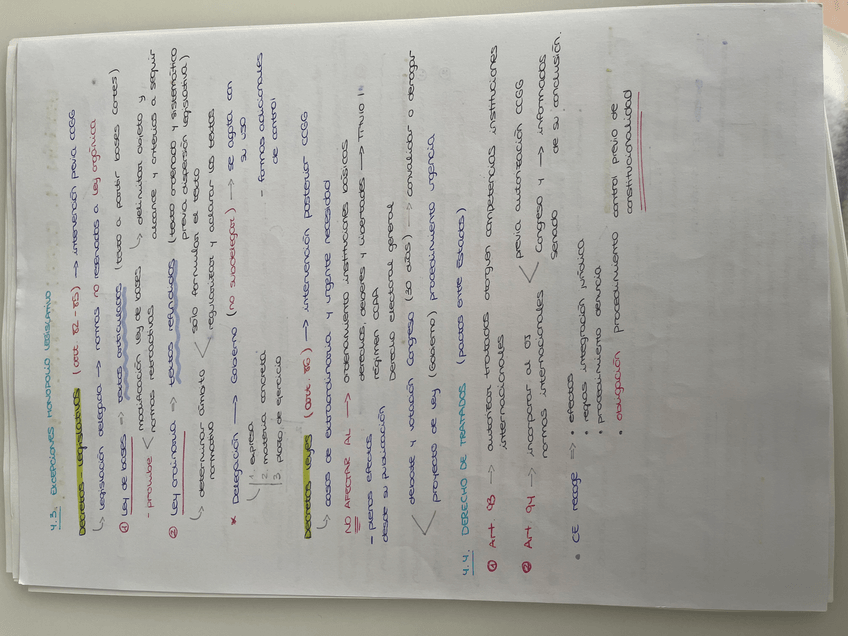 4.3. EXCEPCIONES MONOPOLIO LEGISLATIVO.
Decretos-legislativos (art 82-85) → intervención previa CCGG
↳ legislación delegada → normas no reservadas a ley orgánica
① Ley de bases ⇒ textos articulados (texto a partir bases cortes)
- prohíbe < modificación ley de bases
normas retroactivas
↳ delimitar objeto y
alcance y criterios a seguir
② Ley ordinaria ⇒ textos refundidos (texto ordenado y sistemático
previa dispersión legislativa)
↳ determinar ámbito
normativo
< sólo formular el texto
regularizar y aclarar los textos
* Delegación → Gobierno (no subdelegar) → se agota con
su uso
↳ 1. expresa
2. materia concreta
3. plazo de ejercicio
- formas adicionales
de control
Decretos leyes (art. 86) → intervención posterior CCGG
↳ casos de extraordinaria y urgente necesidad
NO AFECTAR AL → ordenamiento instituciones básicas
derechos, deberes y libertades → TITULO I
régimen CCAA
Derecho electoral general
- plenos efectos
desde su publicación
< debate y votación Congreso (30 días) → convalidar o derogar
proyecto de ley (Gobierno) procedimiento urgencia
4.4. DERECHO DE TRATADOS (pactos entre Estados)
① Art 93 → autorizan tratados otorguen competencias instituciones
internacionales
② Art 94 → incorporar al OJ
normas internacionales
< previa autorización CCGG
Congreso y
Senado
→ informados
de su conclusión.
• CE recoge ⇒ • efectos
• reglas integración jurídica
• procedimiento denuncia
• obligación procedimiento control previo de
constitucionalidad